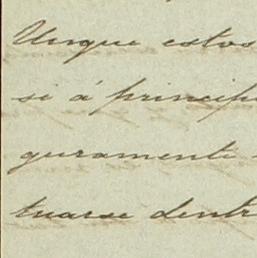 Unque estos
si á princip
guramente
tuarse dentr